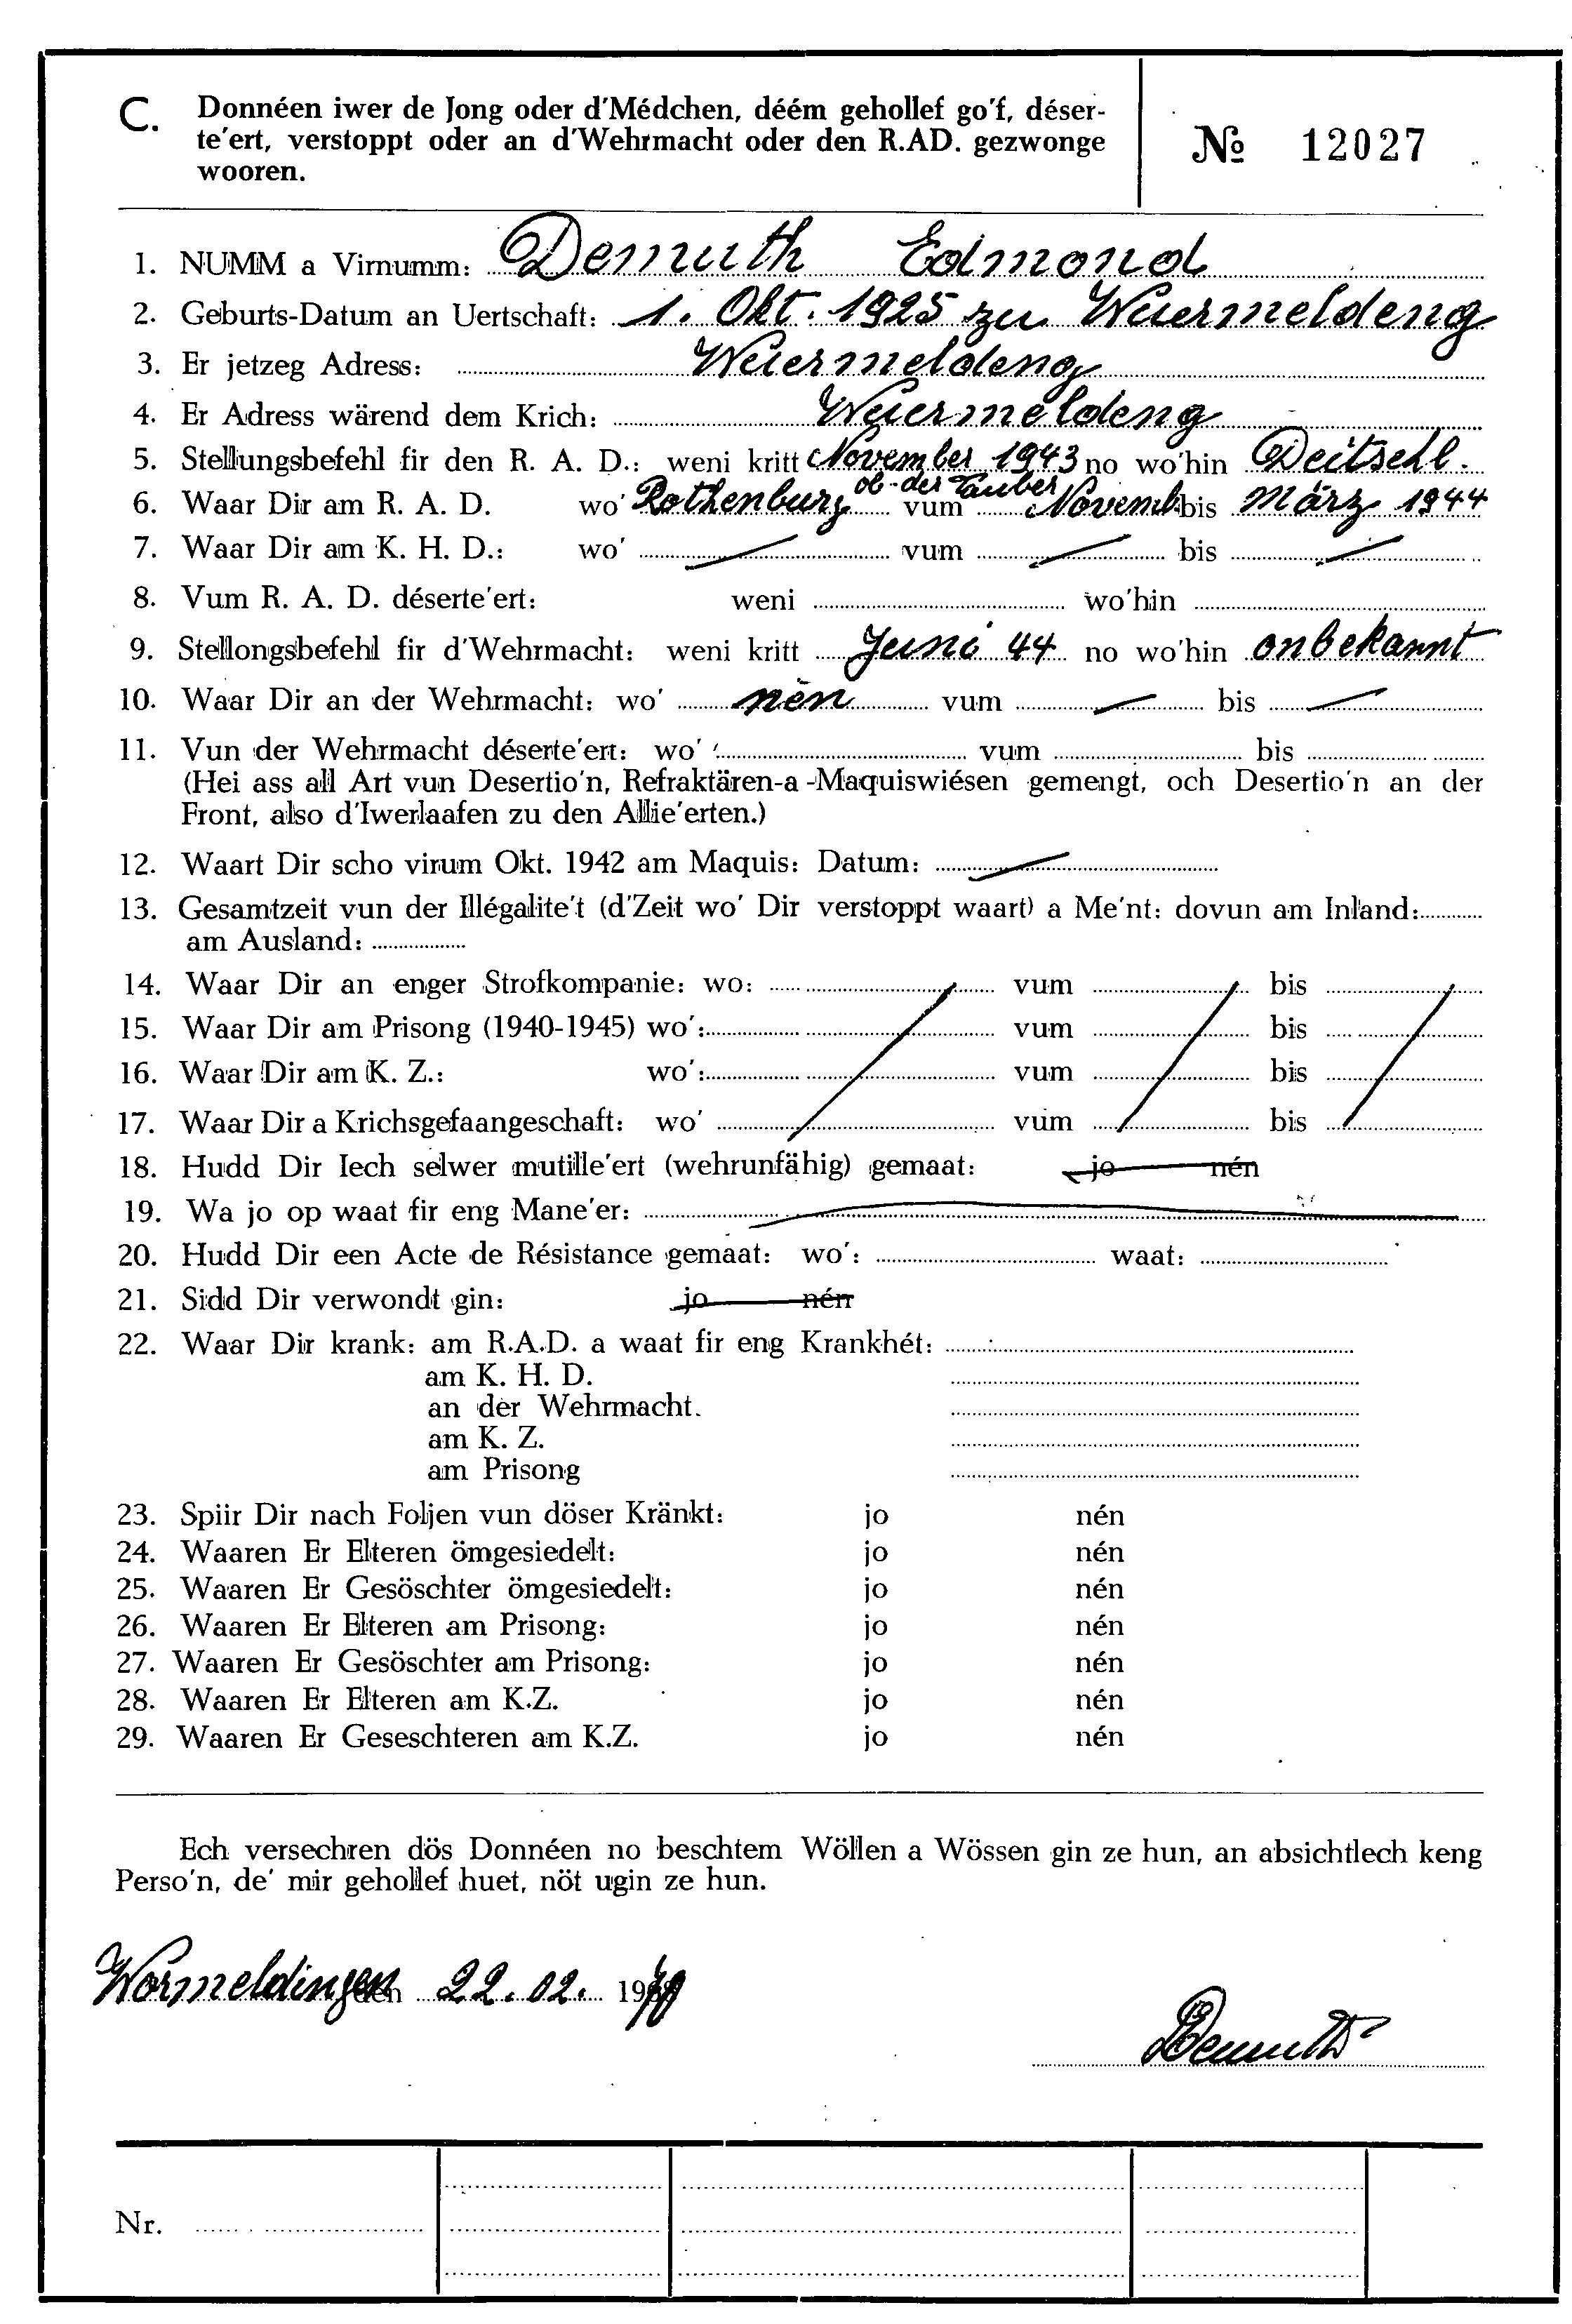 C. Donnéen iwer de Jong oder d'Médchen, déém gehollef go'f, déser-
te'ert, verstoppt oder an d'Wehrmacht oder den R.AD. gezwonge
wooren.
№ 12027
1. NUMM a Virnumm: Demuth Edmond
2. Geburts-Datum an Uertschaft: 1. Okt. 1925 zu Wuermeldeng
3. Er jetzeg Adress: Wuermeldeng
4. Er Adress wärend dem Krich: Wuermeldeng
5. Stellungsbefehl fir den R. A. D.: weni kritt November 1943 no wo'hin Deitschl.
6. Waar Dir am R. A. D. wo' Rothenburg ob-der Tauber vum Novemb. bis März 1944
7. Waar Dir am K. H. D.: wo' vum bis
8. Vum R. A. D. déserte'ert: weni wo'hin
9. Stellongsbefehl fir d'Wehrmacht: weni kritt Juni 44 no wo'hin onbekannt
10. Waar Dir an der Wehrmacht: wo' nèn vum bis
11. Vun der Wehrmacht déserte'ert: wo' vum bis
(Hei ass all Art vun Desertio'n, Refraktären-a -Maquiswiésen gemengt, och Desertio'n an der
Front, also d'Iwerlaafen zu den Allie'erten.)
12. Waart Dir scho virum Okt. 1942 am Maquis: Datum:
13. Gesamtzeit vun der Illégalite't (d'Zeit wo' Dir verstoppt waart) a Me'nt: dovun am Inland:
am Ausland:
14. Waar Dir an enger Strofkompanie: wo: vum bis
15. Waar Dir am Prisong (1940-1945) wo': vum bis
16. Waar Dir am K. Z.: wo': vum bis
17. Waar Dir a Krichsgefaangeschaft: wo' vum bis
18. Hudd Dir Iech selwer mutille'ert (wehrunfähig) gemaat: jo nén
19. Wa jo op waat fir eng Mane'er:
20. Hudd Dir een Acte de Résistance gemaat: wo': waat:
21. Sidd Dir verwondt gin: jo nén
22. Waar Dir krank: am R.A.D. a waat fir eng Krankhét:
am K. H. D.
an der Wehrmacht.
am K. Z.
am Prisong
23. Spiir Dir nach Foljen vun döser Kränkt: jo nén
24. Waaren Er Elteren ömgesiedelt: jo nén
25. Waaren Er Gesöschter ömgesiedelt: jo nén
26. Waaren Er Elteren am Prisong: jo nén
27. Waaren Er Gesöschter am Prisong: jo nén
28. Waaren Er Elteren am K.Z. jo nén
29. Waaren Er Geseschteren am K.Z. jo nén
Ech versechren dös Donnéen no beschtem Wöllen a Wössen gin ze hun, an absichtlech keng
Perso'n, de' mir gehollef huet, nöt ugin ze hun.
Wormeldingen den 22.02. 19
Demuth
Nr.